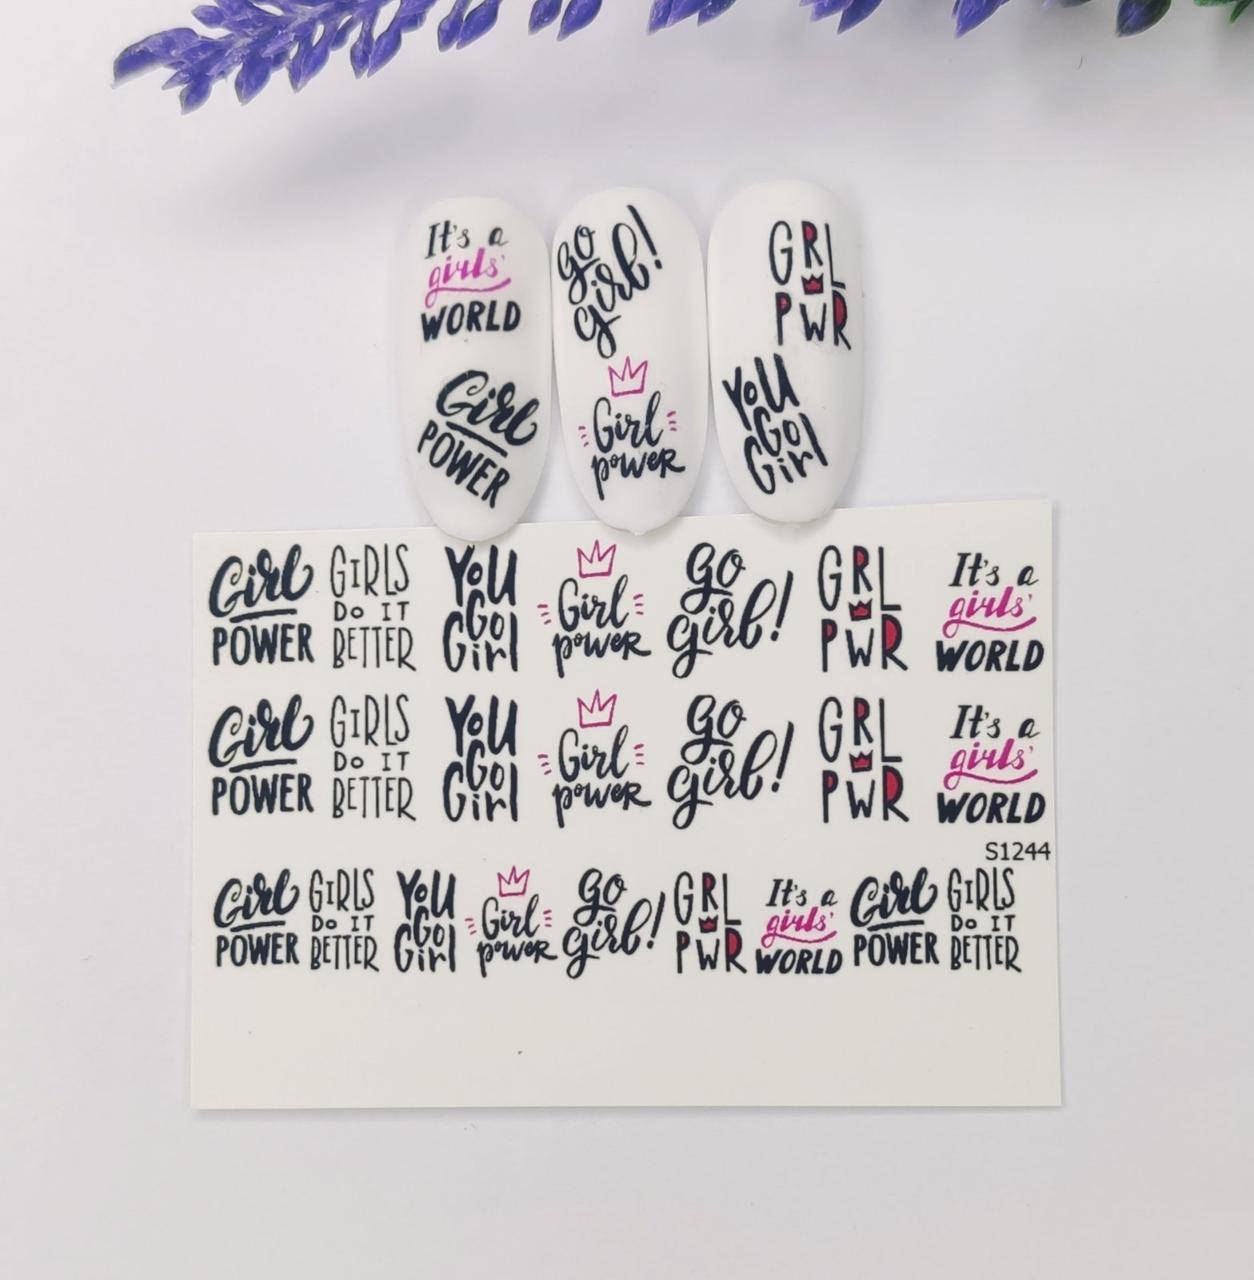 It's a
girls'
WORLD
Girl
POWER
go
girl!
Girl
power
GRL
PWR
YOU
Go
Girl
Girl
POWER
GIRLS
DO IT
BETTER
YOU
Go
Girl
Girl
power
go
girl!
GRL
PWR
It's a
girls'
WORLD
Girl
POWER
GIRLS
DO IT
BETTER
YOU
Go
Girl
Girl
power
go
girl!
GRL
PWR
It's a
girls'
WORLD
S1244
Girl
POWER
GIRLS
DO IT
BETTER
YOU
Go
Girl
Girl
power
go
girl!
GRL
PWR
It's a
girls'
WORLD
Girl
POWER
GIRLS
DO IT
BETTER